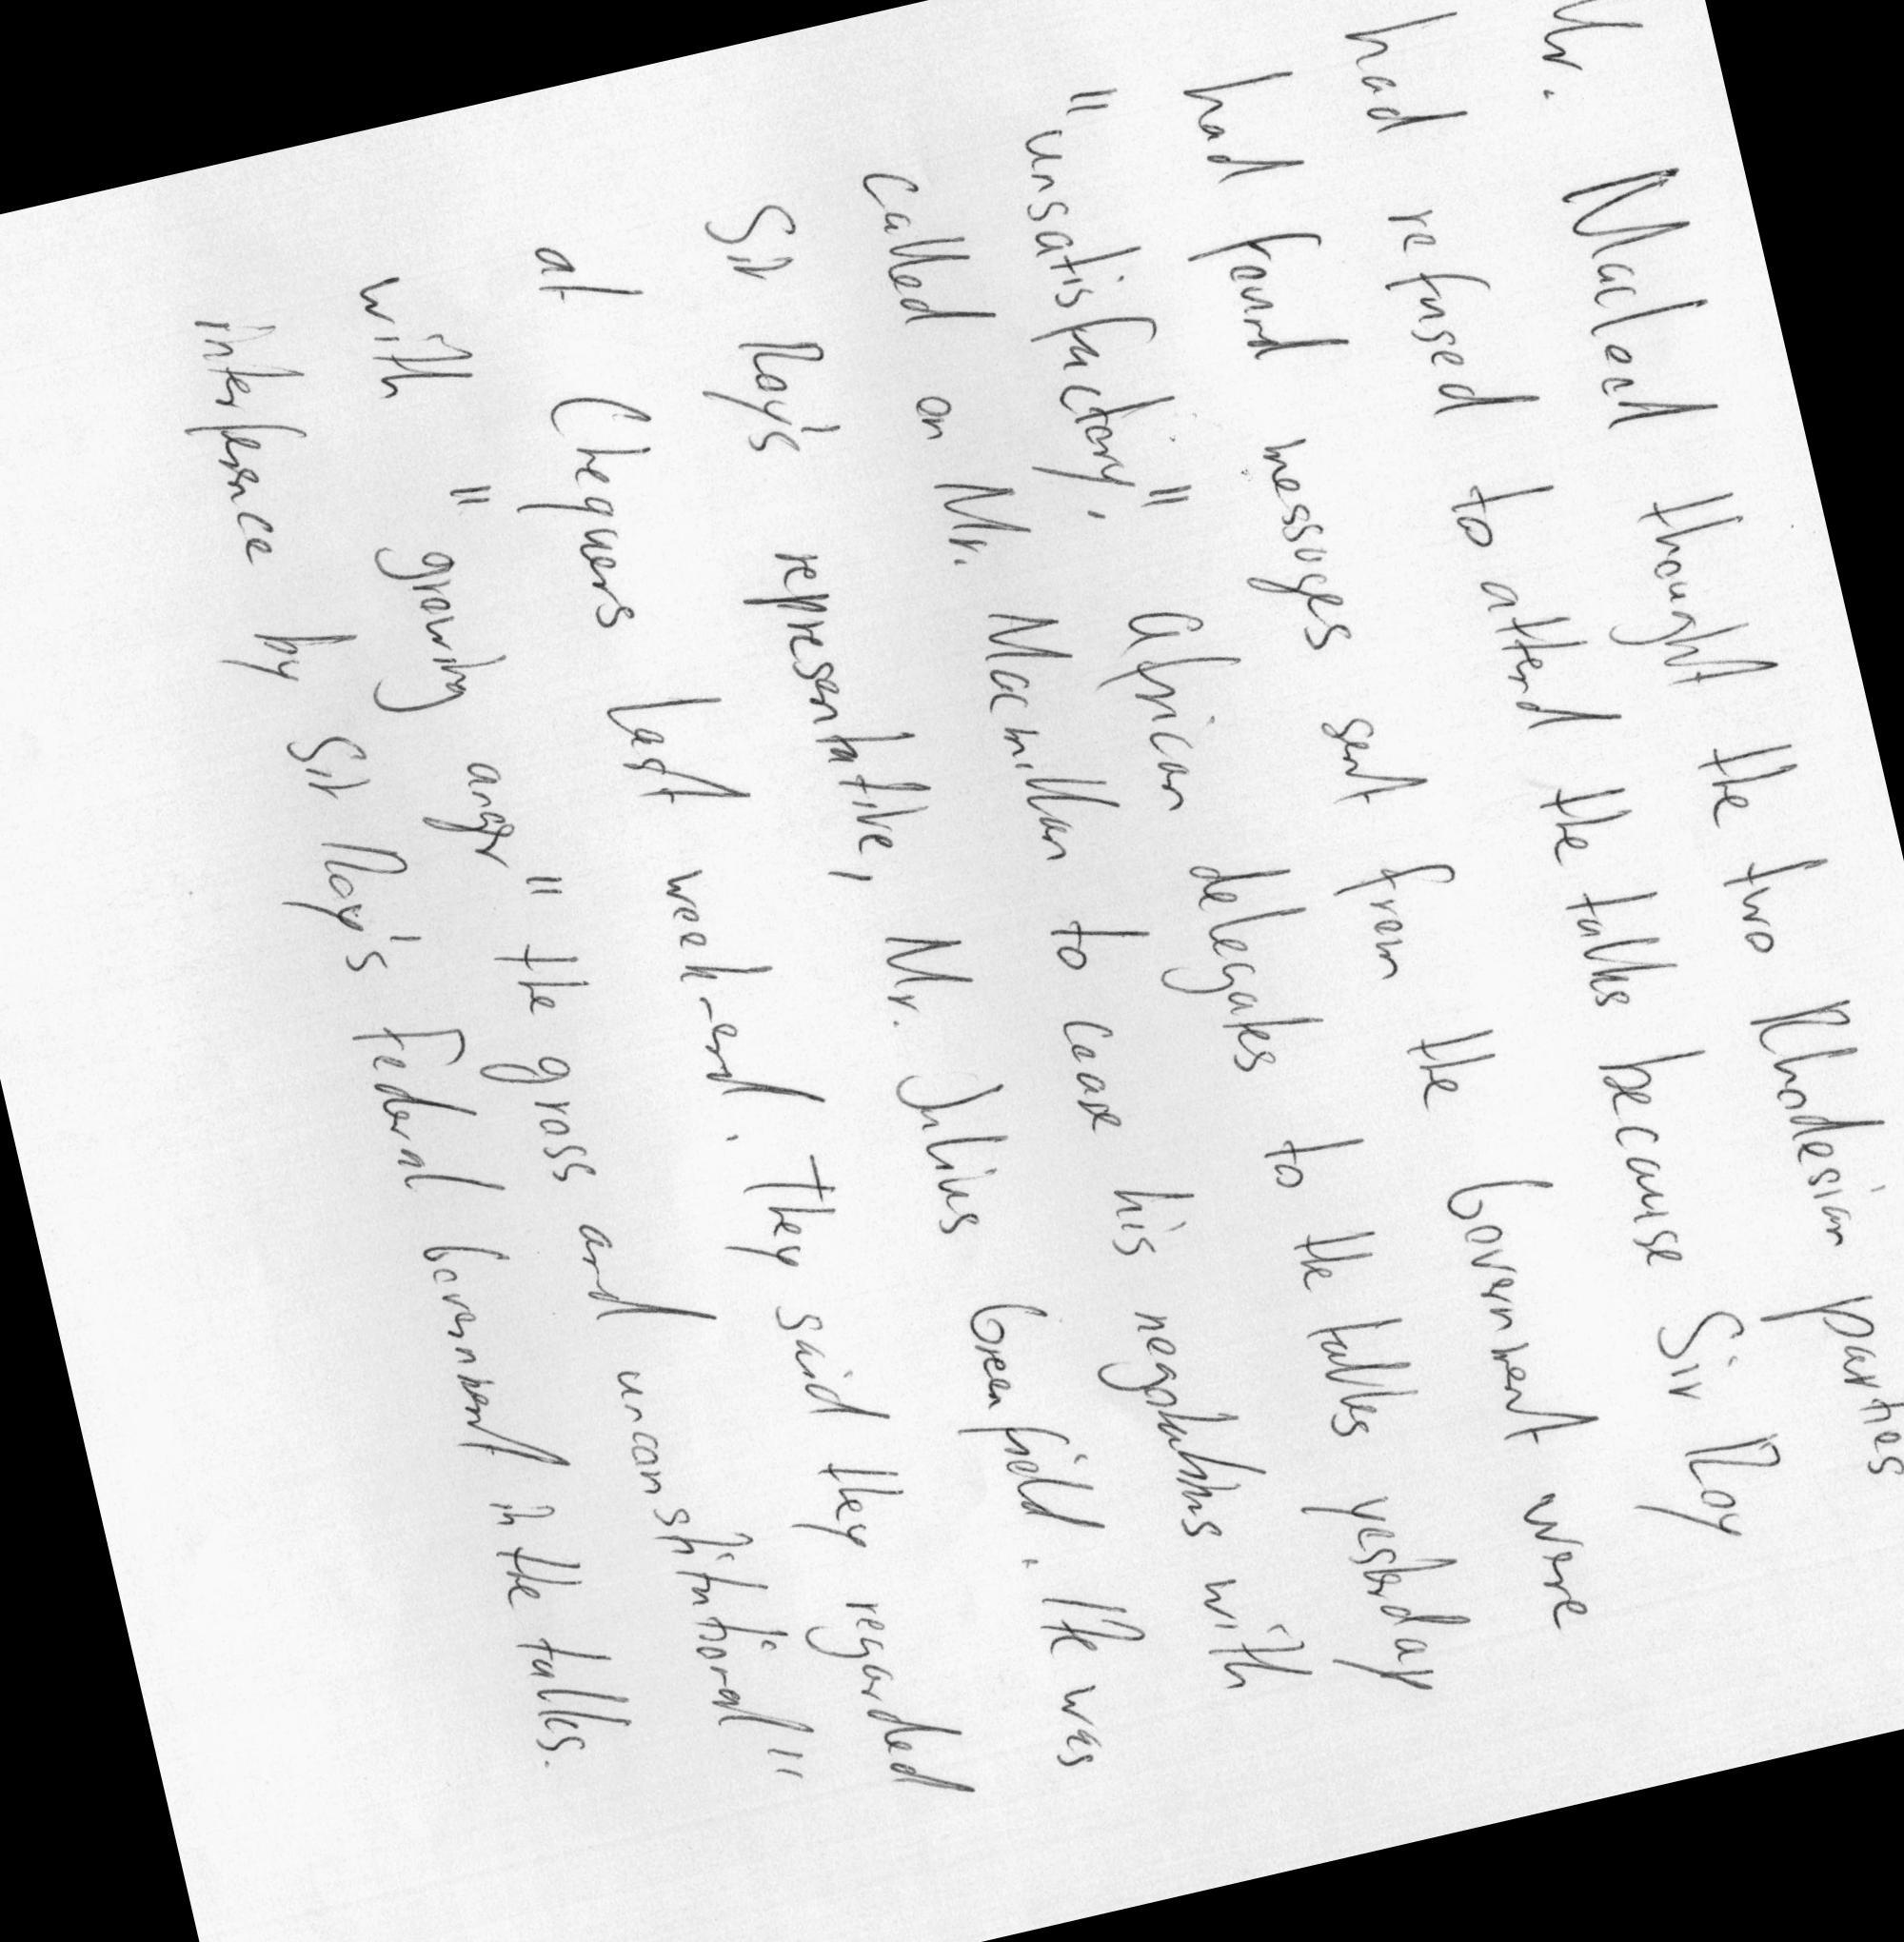 Mr. Macleod thought the two Rhodesian parties
had refused to attend the talks because Sir Roy
had found messages sent from the Government were
"unsatisfactory." African delegates to the talks yesterday
called on Mr. Macmillan to cease his negotiations with
Sir Roy's representative, Mr. Julius Greenfield. He was
at Chequers last week-end. They said they regarded
with "growing anger" the gross and unconstitutional"
interference by Sir Roy's Federal Government in the talks.